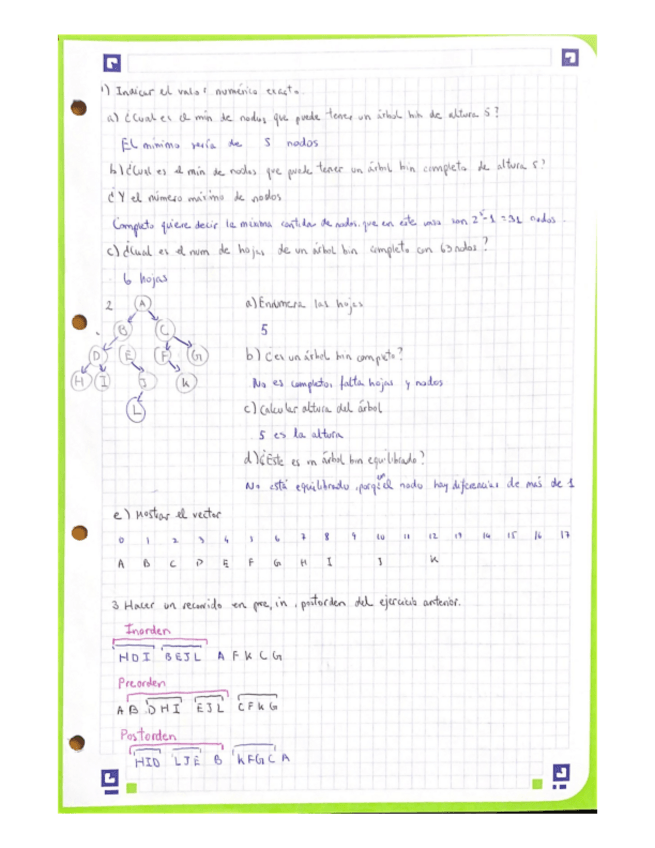 1) Indicar el valor numérico exacto.
a) ¿Cual es el min de nodos que puede tener un árbol bin de altura 5?
El mínimo sería de 5 nodos
b) ¿Cual es el min de nodos que puede tener un árbol bin completo de altura 5?
¿Y el número máximo de nodos
Completo quiere decir la máxima cantidad de nodos, que en este caso son 2^5-1 = 31 nodos.
c) ¿Cual es el num de hojas de un árbol bin completo con 63 nodos?
6 hojas
2.
A
B C
D E F G
H I J K
L
a) Enumera las hojas
5
b) ¿es un árbol bin completo?
No es completo, falta hojas y nodos
c) Calcular altura del árbol
5 es la altura
d) ¿Este es un árbol bin equilibrado?
No está equilibrado, porque el nodo hay diferencias de más de 1
e) Mostrar el vector
0 1 2 3 4 5 6 7 8 9 10 11 12 13 14 15 16 17
A B C D E F G H I J K
3 Hacer un recorrido en pre, in, postorden del ejercicio anterior.
Inorden
HDI BEJL A F K C G
Preorden
A B DHI EJL CFKG
Postorden
HID LJE B KFGC A